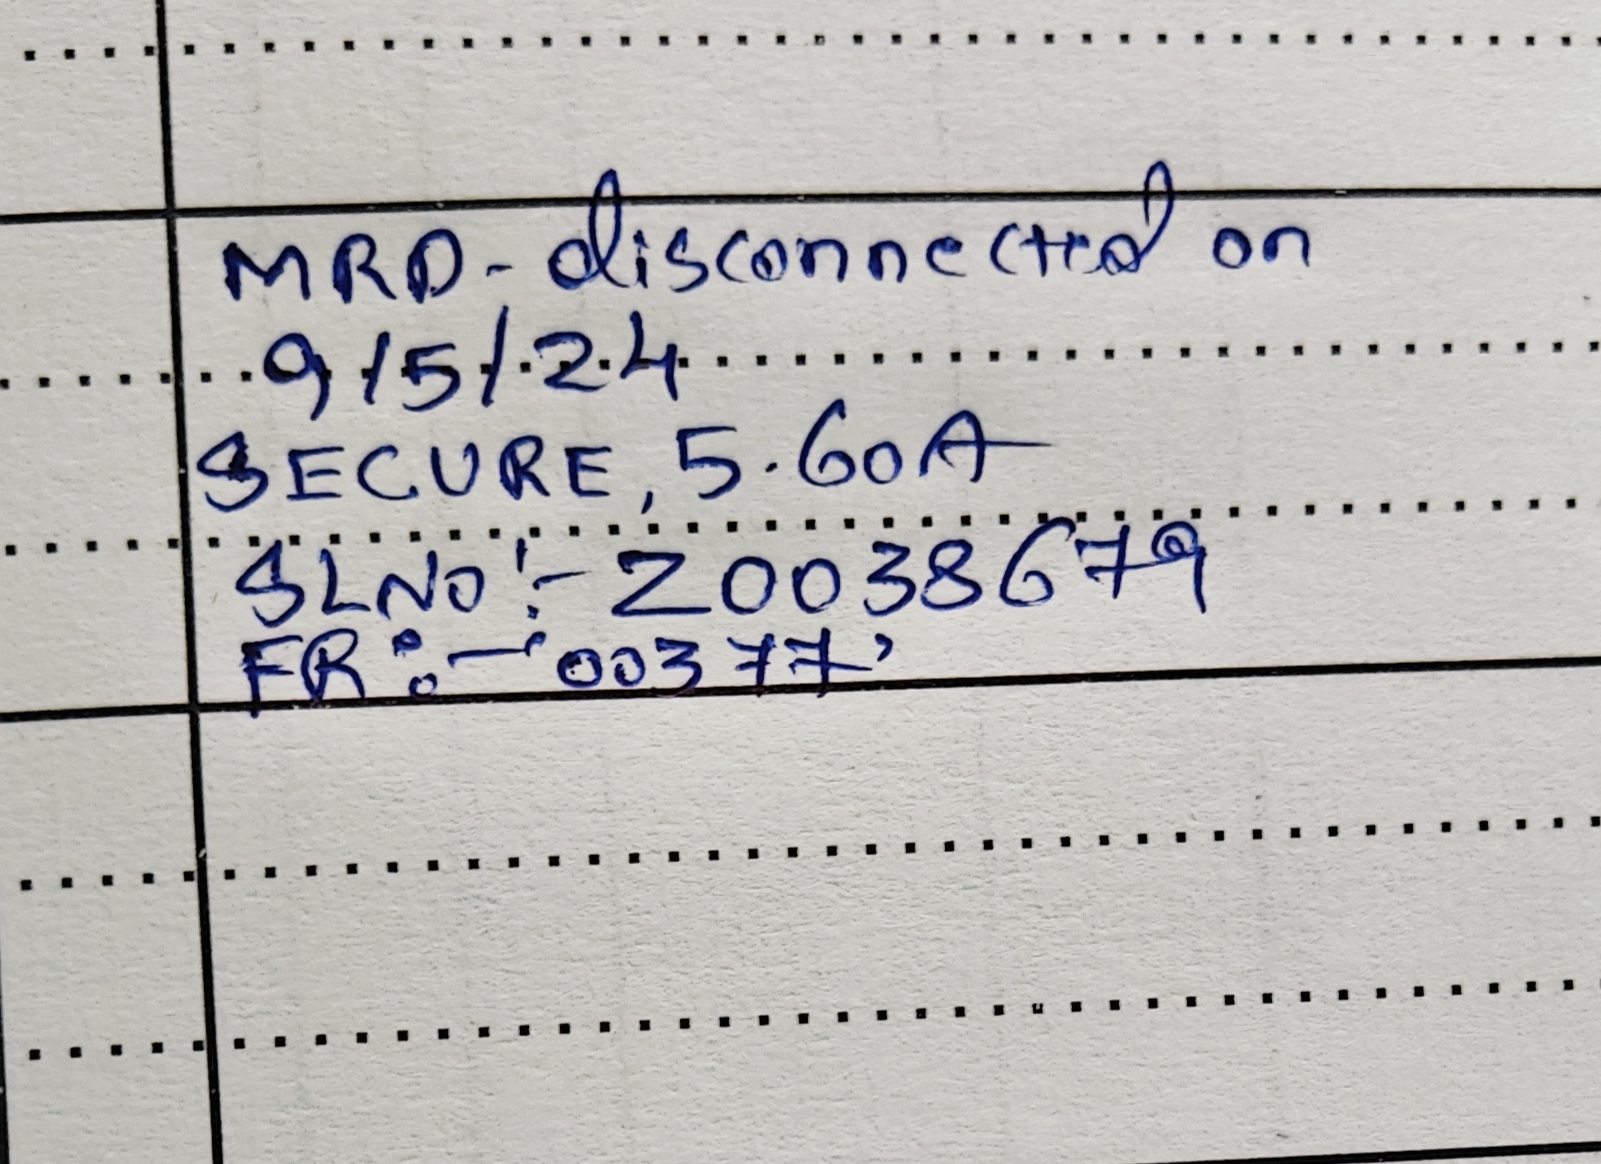 MRD- disconnected on
9/5/24
SECURE, 5.60A
SLNO:- Z0038679
FR:- '00377'